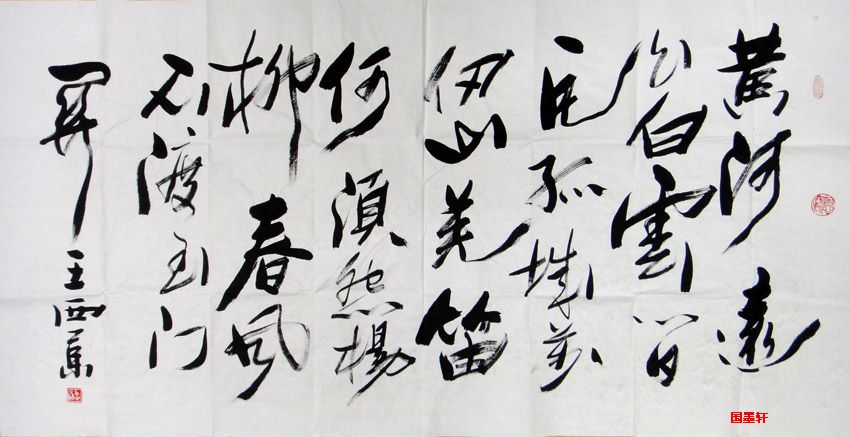 黄河遠
上白雲間
一片孤城萬
仞山羌笛
何須怨楊
柳春風
不渡玉门
関
王西
国墨轩